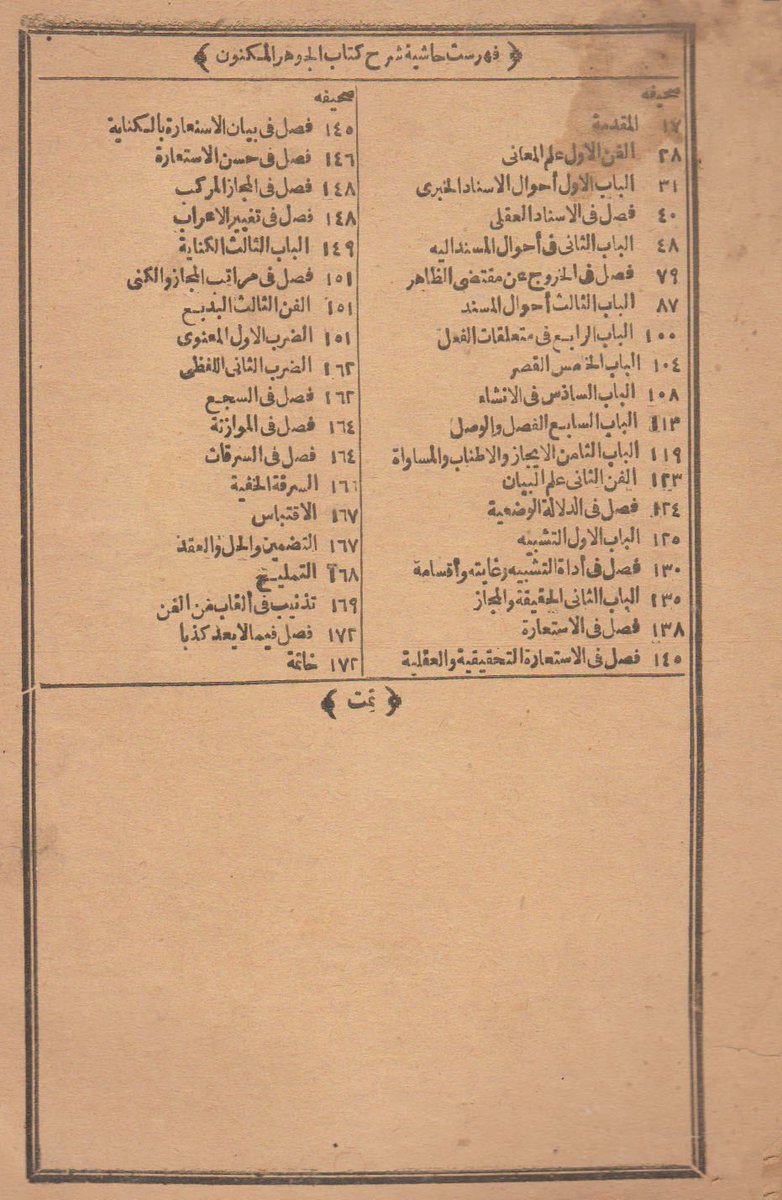 ﴿ فهرست حاشية شرح كتاب الجوهر المكنون ﴾
صحيفه
١٧ المقدمة
٢٨ الفن الاول علم المعانى
٣١ الباب الاول أحوال الاسناد الخبرى
٤٠ فصل فى الاسناد العقلى
٤٨ الباب الثانى فى أحوال المسند اليه
٧٩ فصل فى الخروج عن مقتضى الظاهر
٨٧ الباب الثالث أحوال المسند
١٠٠ الباب الرابع فى متعلقات الفعل
١٠٤ الباب الخامس القصر
١٠٨ الباب السادس فى الانشاء
١١٣ الباب السابع الفصل والوصل
١١٩ الباب الثامن الايجاز والاطناب والمساواة
١٢٣ الفن الثانى علم البيان
١٢٤ فصل فى الدلالة الوضعية
١٢٥ الباب الاول التشبيه
١٣٠ فصل فى أداة التشبيه وغايته وأقسامه
١٣٥ الباب الثانى الحقيقة والمجاز
١٣٨ فصل فى الاستعارة
١٤٥ فصل فى الاستعارة التحقيقية والعقلية
صحيفه
١٤٥ فصل فى بيان الاستعارة بالمكناية
١٤٦ فصل فى حسن الاستعارة
١٤٨ فصل فى المجاز المركب
١٤٨ فصل فى تغيير الاعراب
١٤٩ الباب الثالث الكناية
١٥١ فصل فى مراتب المجاز والكنى
١٥١ الفن الثالث البديع
١٥١ الضرب الاول المعنوى
١٦٢ الضرب الثانى اللفظى
١٦٢ فصل فى السجع
١٦٤ فصل فى الموازنة
١٦٤ فصل فى السرقات
١٦٦ السرقة الخفية
١٦٧ الاقتباس
١٦٧ التضمين والحل والعقد
١٦٨ التمليح
١٦٩ تذنيب فى ألقاب من الفن
١٧٢ فصل فيما لا يعد كذبا
١٧٢ خاتمة
﴿ تمت ﴾